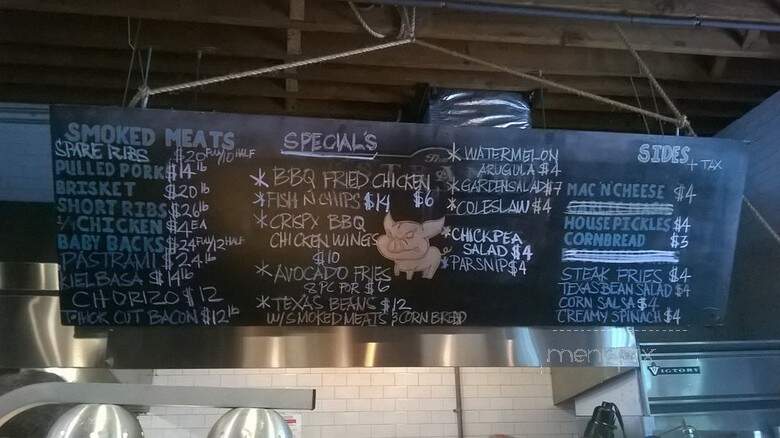 SMOKED MEATS
SPARE RIBS $20 FULL/10 HALF
PULLED PORK $14 lb
BRISKET $20 lb
SHORT RIBS $26 lb
1/4 CHICKEN $4 EA
BABY BACKS $24 FULL/12 HALF
PASTRAMI $24 lb
KIELBASA $14 lb
CHORIZO $12
THICK CUT BACON $12 lb
SPECIAL'S
* BBQ FRIED CHICKEN
* FISH N CHIPS $14 $6
* CRISPY BBQ
CHICKEN WINGS
$10
* AVOCADO FRIES
8 PC FOR $6
* TEXAS BEANS $12
W/ SMOKED MEATS & CORN BREAD
* WATERMELON
ARUGULA $4
* GARDEN SALAD $7
* COLESLAW $4
* CHICKPEA
SALAD $4
* PARSNIP $4
SIDES + TAX
MAC N' CHEESE $4
HOUSE PICKLES $4
CORNBREAD $3
STEAK FRIES $4
TEXAS BEAN SALAD $4
CORN SALSA $4
CREAMY SPINACH $4
VICTORY